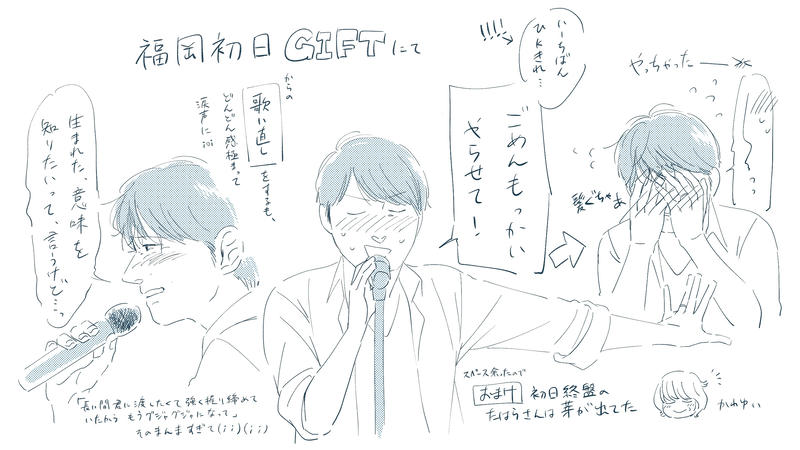 福岡初日GIFTにて
やっちゃった
〜〜っっ
髪ぐちゃあ
!!!!
いーちばん
ひkきれ…
ごめんもっかい
やらせて！
からの
歌い直しをするも、
どんどん感極まって
涙声に…
生まれた、意味を
知りたいって、言うけど…っ
「長い間君に渡したくて強く握り締めて
いたから もうグジャグジャになって」
そのまんますぎて(；；)(；；)
スペース余ったので
おまけ 初日終盤の
たはらさんは芽が出てた
かわゆい